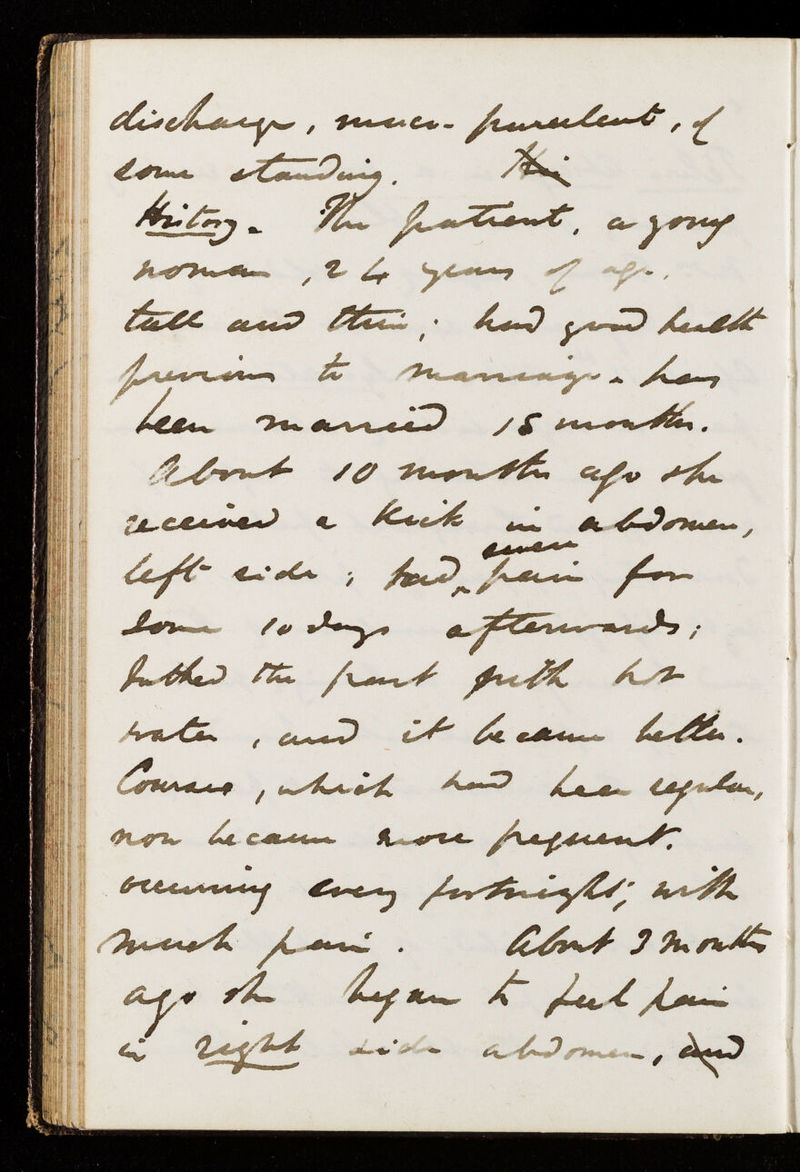 discharge, muco-purulent, of
some standing. His
History. The patient, a young
woman, 24 years of age,
tall and thin; had good health
previous to marriage. has
been married 15 months.
About 10 months ago she
received a kick in abdomen,
left side; had severe pain for
some 10 days afterwards;
bathed the part with hot
water, and it became better.
Courses, which had been regular,
now became more frequent.
occurring every fortnight; with
much pain. About 3 months
ago she began to feel pain
in right side abdomen, and